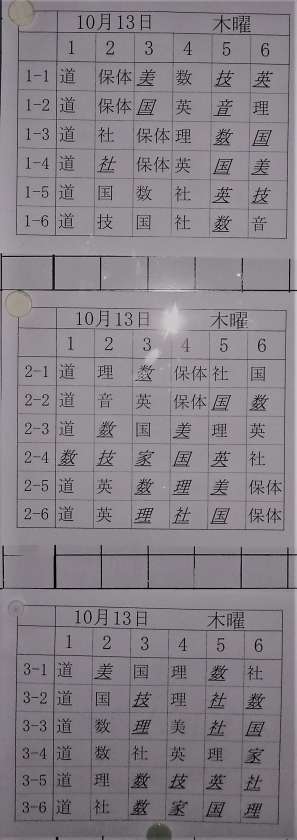 10月13日 木曜
1 2 3 4 5 6
1-1 道 保体 美 数 技 英
1-2 道 保体 国 英 音 理
1-3 道 社 保体 理 数 国
1-4 道 社 保体 英 国 美
1-5 道 国 数 社 英 技
1-6 道 技 国 社 数 音
10月13日 木曜
1 2 3 4 5 6
2-1 道 理 数 保体 社 国
2-2 道 音 英 保体 国 数
2-3 道 数 国 美 理 英
2-4 数 技 家 国 英 社
2-5 道 英 数 理 美 保体
2-6 道 英 理 社 国 保体
10月13日 木曜
1 2 3 4 5 6
3-1 道 美 国 理 数 社
3-2 道 国 技 理 社 数
3-3 道 数 理 美 社 国
3-4 道 数 社 英 理 家
3-5 道 理 数 技 英 社
3-6 道 社 数 家 国 理